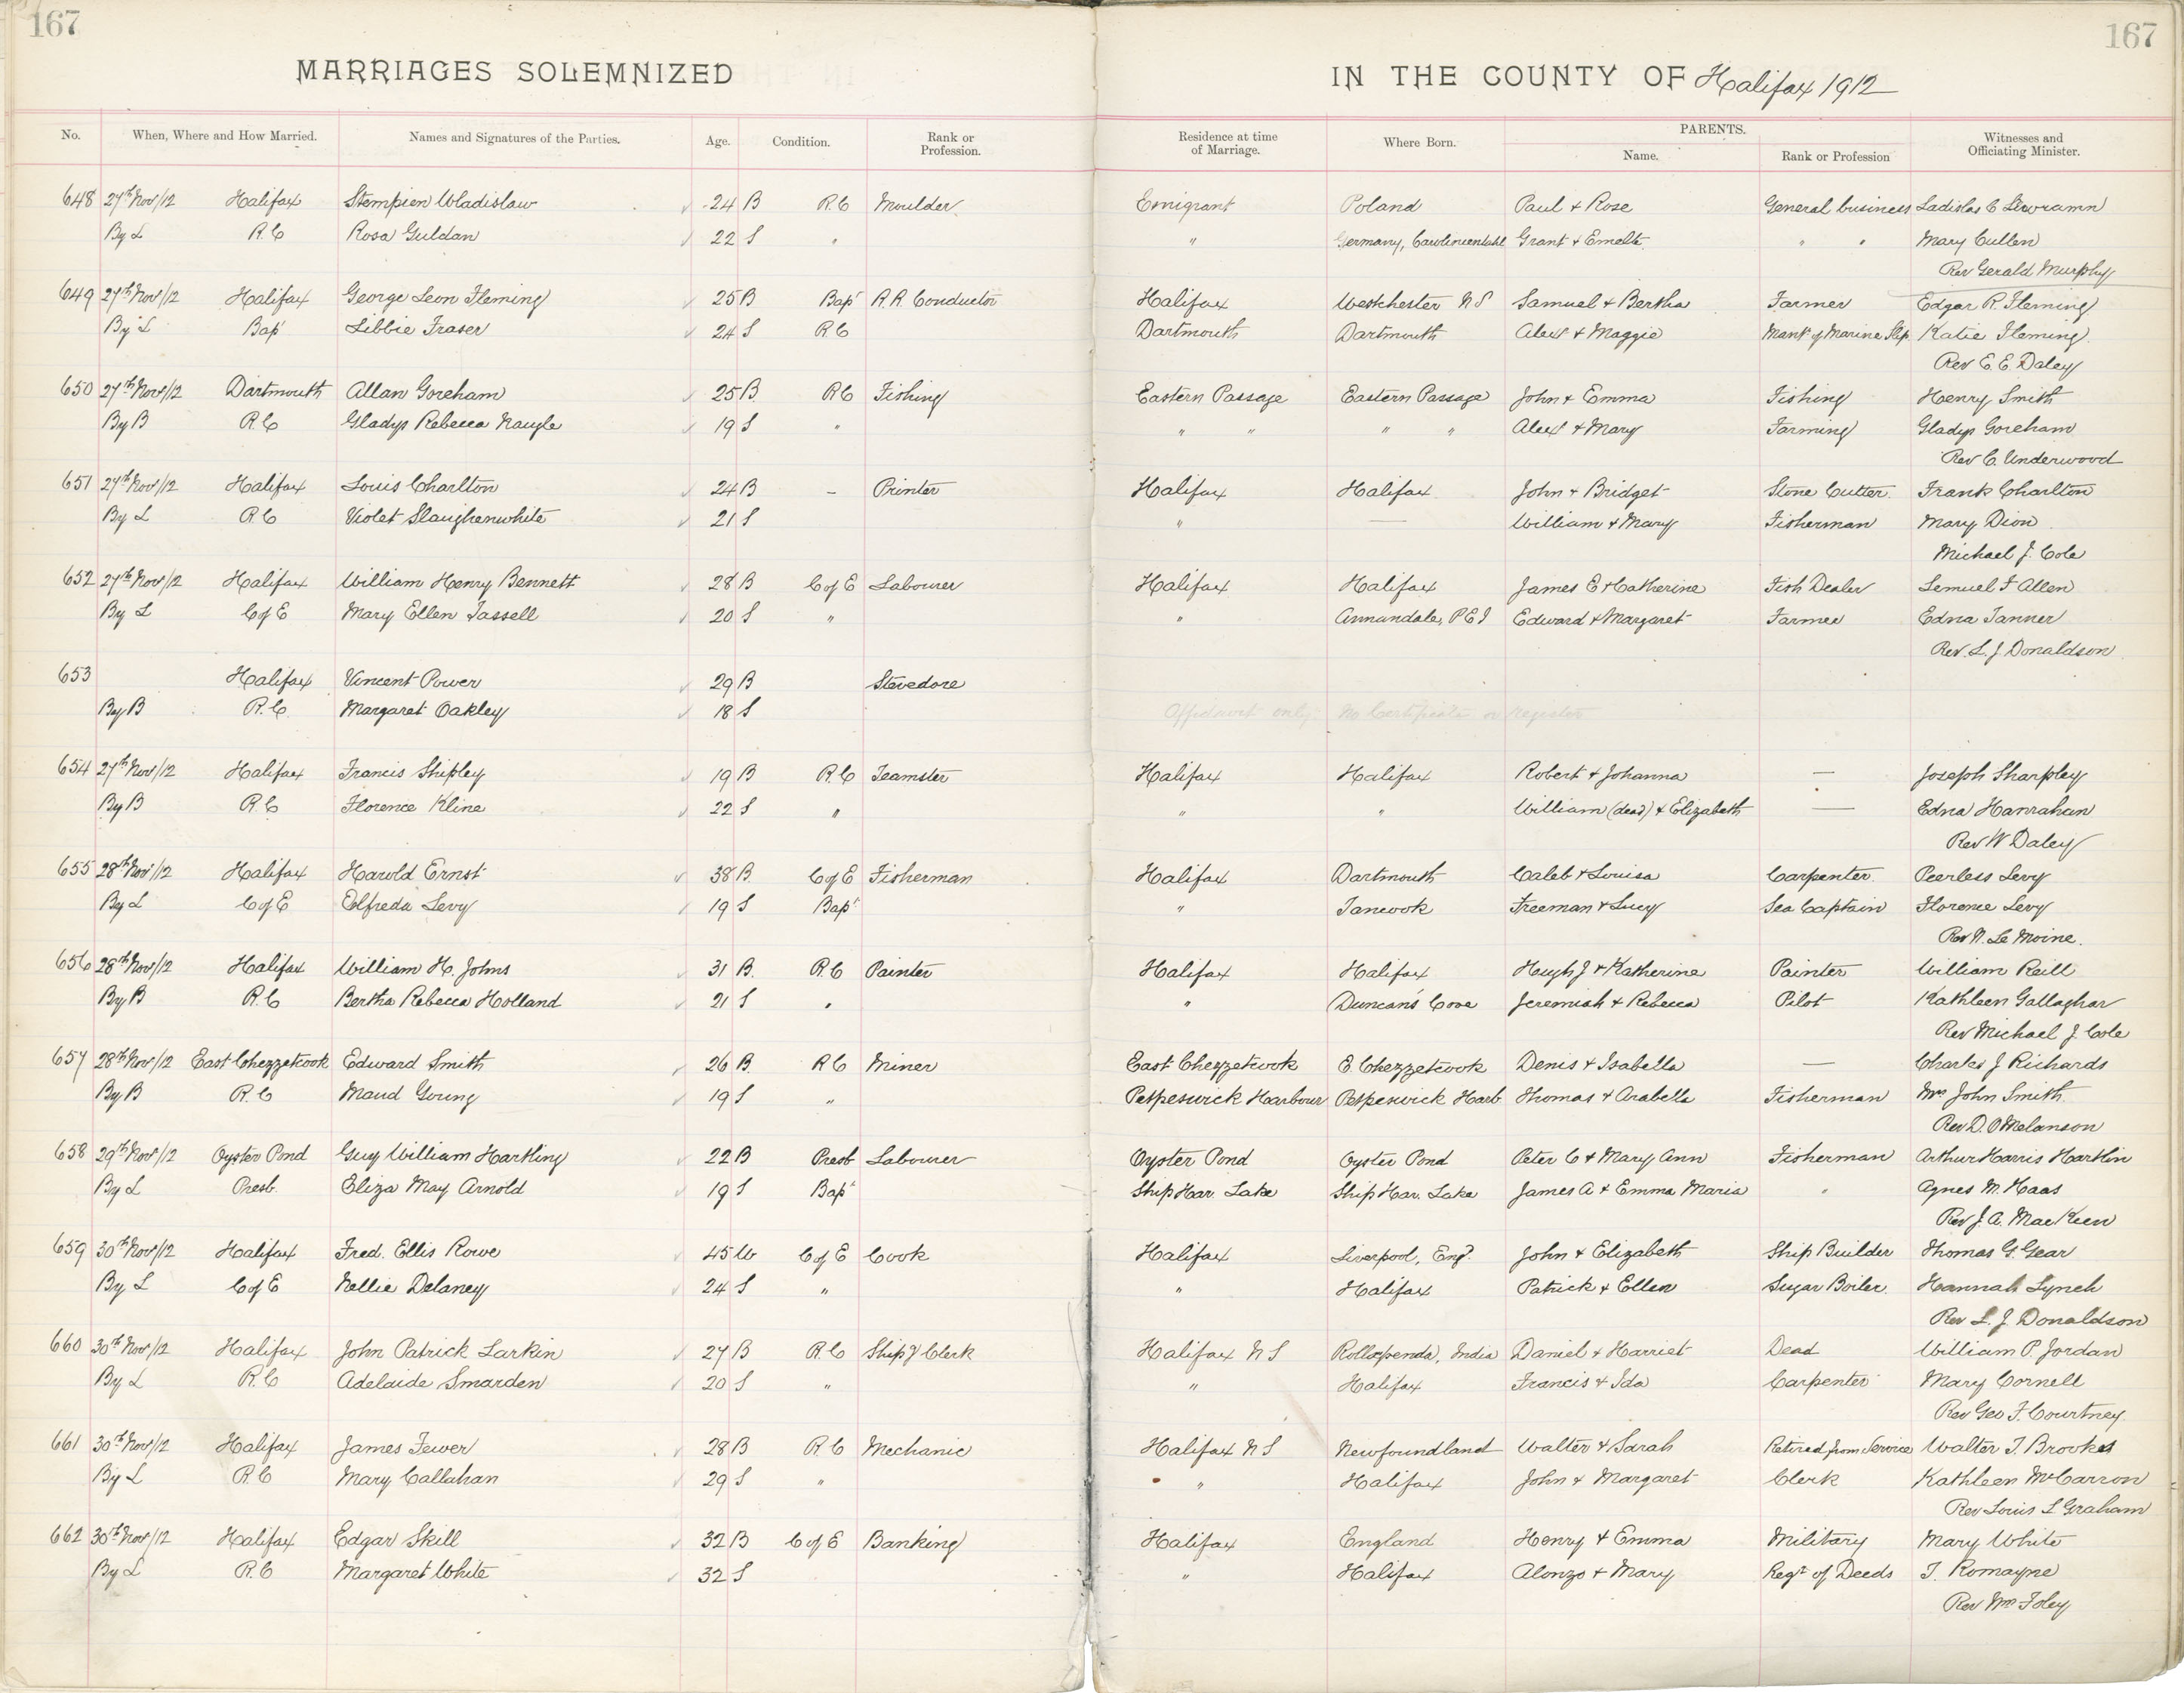 167
167
MARRIAGES SOLEMNIZED IN THE COUNTY OF Halifax 1912
No. When, Where and How Married. Names and Signatures of the Parties. Age. Condition. Rank or Profession. Residence at time of Marriage. Where Born. PARENTS. Name. Rank or Profession Witnesses and Officiating Minister.
648 27th Nov/12 Halifax Stempien Wladislaw 24 B R.C Moulder Emigrant Poland Paul + Rose General business Ladislas C
By L R.C Rosa Guldan 22 S " " Germany, Grant + " " Mary Cullen
Rev Gerald Murphy
649 27th Nov/12 Halifax George Leon Fleming 25 B Bapt R.R. Conductor Halifax Westchester N S Samuel + Bertha Farmer Edgar R. Fleming
By L Bapt Libbie Fraser 24 S R C Dartmouth Dartmouth Alexr + Maggie of Marine Slip Katie Fleming
Rev E. E. Daley
650 27th Nov/12 Dartmouth Allan Goreham 25 B. RC Fishing Eastern Passage Eastern Passage John + Emma Fishing Henry Smith
By B R.C Gladys Rebecca Naugle 19 S " " " " " Alexr + Mary Farming Gladys Goreham
Rev C. Underwood
651 27th Nov/12 Halifax Louis Charlton 24 B – Printer Halifax Halifax John + Bridget Stone Cutter Frank Charlton
By L R C Violet Slaughenwhite 21 S " — William + Mary Fisherman Mary Dion
Michael J. Cole
652 27th Nov/12 Halifax William Henry Bennett 28 B C of E Labourer Halifax Halifax James E + Catherine Fish Dealer Lemuel F Allen
By L C of E Mary Ellen Tassell 20 S " " Annandale, P E I Edward + Margaret Farmer Edna Tanner
Rev. L. J Donaldson
653 Halifax Vincent Power 29 B Stevedore
By B R.C. Margaret Oakley 18 S Affidavit only No Certificate or register
654 27th Nov/12 Halifax Francis Shipley 19 B R.C Teamster Halifax Halifax Robert + Johanna — Joseph Sharpley
By B R.C Florence Kline 22 S " " " William (dead) + Elizabeth — Edna Hanrahan
Rev W Daley
655 28th Nov/12 Halifax Harold Ernst 38 B. C of E Fisherman Halifax Dartmouth Caleb + Louisa Carpenter Peerless Levy
By L C of E Elfreda Levy 19 S Bapt " Tancook Freeman + Lucy Sea Captain Florence Levy
Rev N. Le Moine.
656 28th Nov/12 Halifax William H. Johns 31 B. R.C Painter Halifax Halifax Hugh J + Katherine Painter William Reill
By B R.C Bertha Rebecca Holland 21 S " " Duncan's Cove Jeremiah + Rebecca Pilot Kathleen Gallaghar
Rev Michael J. Cole
657 28th Nov/12 East Chezzetcook Edward Smith 26 B. R C Miner East Chezzetcook E. Chezzetcook Denis + Isabella — Charles J Richards
By B R.C Maud Young 19 S " Petpeswick Harbour Petpeswick Harb Thomas + Arabella Fisherman Mrs John Smith
Rev D. O Melanson
658 29th Nov/12 Oyster Pond Guy William Hartling 22 B Presb Labourer Oyster Pond Oyster Pond Peter C + Mary Ann Fisherman Arthur Harris Hartlin
By L Presb. Eliza May Arnold 19 S Bapt Ship Har. Lake Ship Har. Lake James A + Emma Maria " Agnes M. Haas
Rev J. A. MacKeen
659 30th Nov/12 Halifax Fred. Ellis Rowe 45 W C of E Cook Halifax Liverpool, Engd. John + Elizabeth Ship Builder Thomas G. Gear
By L C of E Nellie Delaney 24 S " " Halifax Patrick + Ellen Sugar Boiler Hannah Lynch
Rev L. J. Donaldson
660 30th Nov/12 Halifax John Patrick Larkin 27 B R.C Shipg Clerk Halifax N S India Daniel + Harriet Dead William P. Jordan
By L R.C Adelaide Smarden 20 S " " Halifax Francis + Ida Carpenter Mary Cornell
Rev Geo F. Courtney
661 30th Nov/12 Halifax James Fewer 28 B R.C Mechanic Halifax N S Newfoundland Walter + Sarah Retired from Service Walter T. Brookes
By L R C Mary Callahan 29 S " " Halifax John + Margaret Clerk Kathleen McCarron
Rev Louis L Graham
662 30th Nov/12 Halifax Edgar Skill 32 B C of E Banking Halifax England Henry + Emma Military Mary White
By L R.C Margaret White 32 S " Halifax Alonzo + Mary Regr of Deeds T. Romayne
Rev Wm Foley